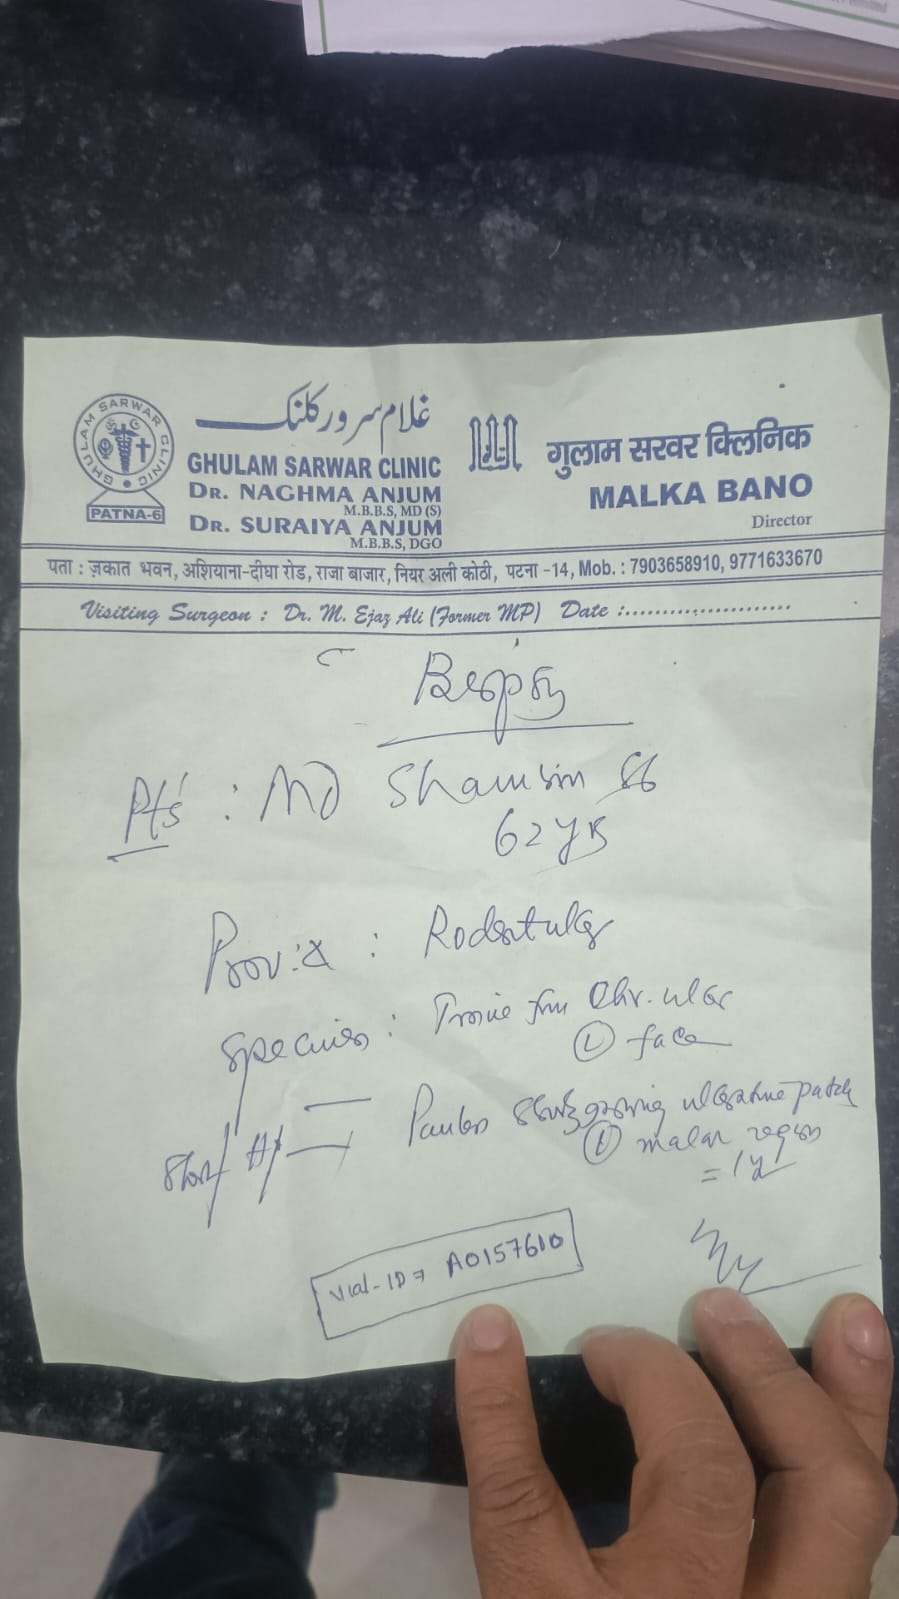 GHULAM SARWAR CLINIC
PATNA-6
غلام سرور کلنک
GHULAM SARWAR CLINIC
DR. NAGHMA ANJUM
M.B.B.S, MD (S)
DR. SURAIYA ANJUM
M.B.B.S, DGO
गुलाम सरवर क्लिनिक
MALKA BANO
Director
पता : ज़कात भवन, अशियाना-दीघा रोड, राजा बाजार, नियर अली कोठी, पटना -14, Mob. : 7903658910, 9771633670
Visiting Surgeon : Dr. M. Ejaz Ali (Former MP) Date :
Biopsy
Pt's : MD
62 yrs
Prov: : Rodent ulcer
: from Chr. ulcer
(L) face
Short H/ growing ulcerative patch
(L) malar region
= 1 yr
Vial-ID = A0157610